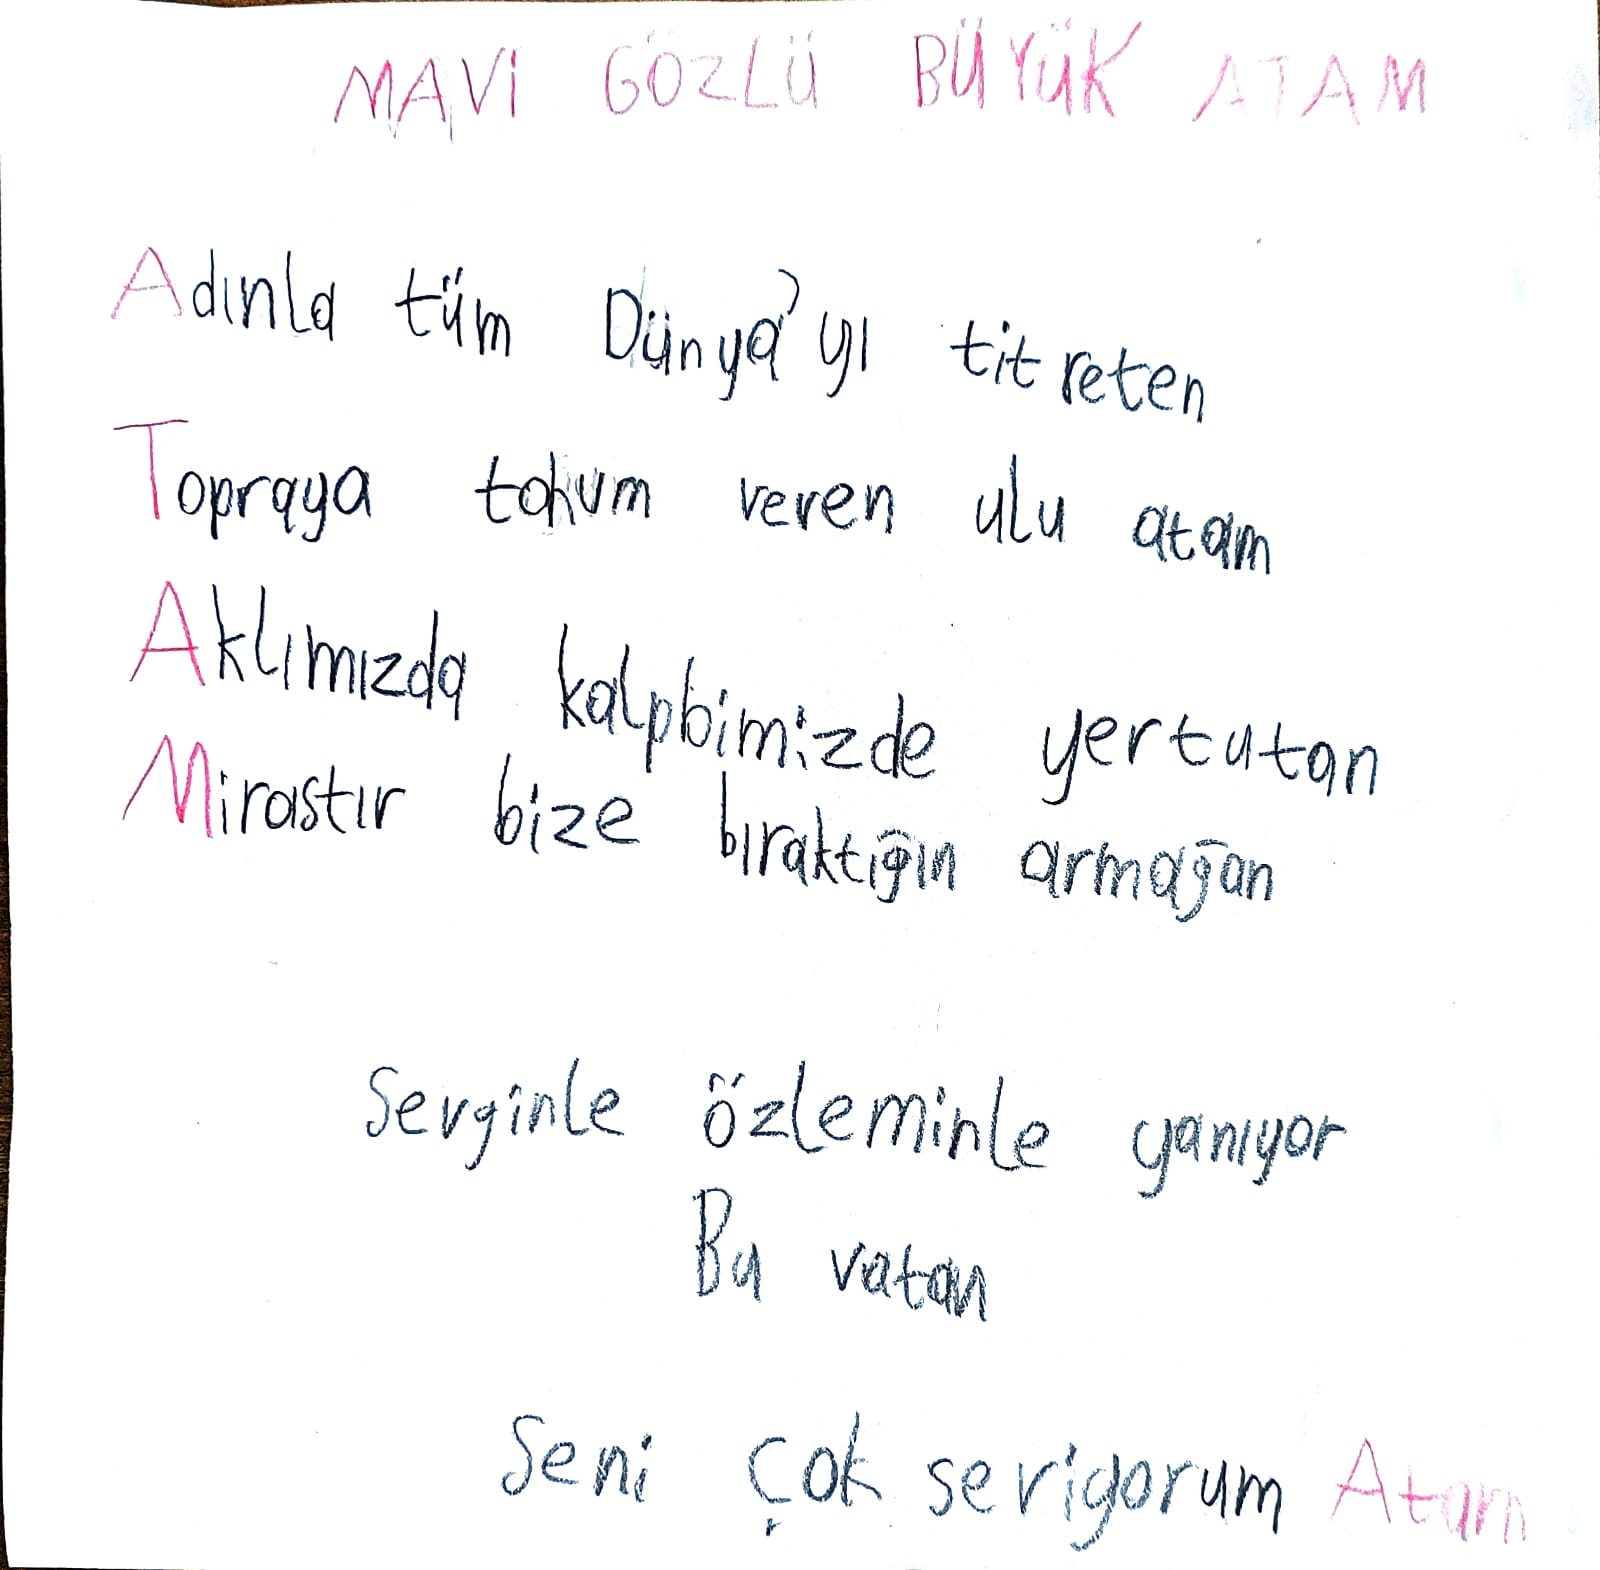 MAVİ GÖZLÜ BÜYÜK ATAM
Adınla tüm Dünya'yı titreten
Topraya tohum veren ulu atam
Aklımızda kalpbimizde yertutan
Mirastır bize bıraktığın armağan
Sevginle özleminle yanıyor
Bu vatan
Seni çok seviyorum Atam